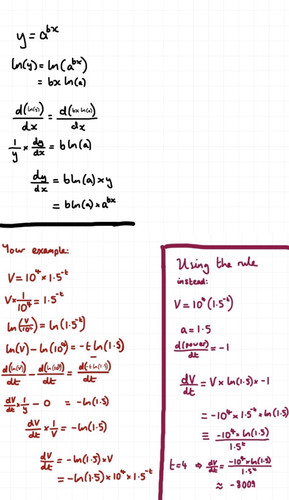 y = a^bx
ln(y) = ln(a^bx)
= bx ln(a)
d(ln(y))/dx = d(bx ln(a))/dx
1/y × dy/dx = b ln(a)
dy/dx = b ln(a) × y
= b ln(a) × a^bx
Your example:
V = 10⁴ × 1.5^-t
V × 1/10⁴ = 1.5^-t
ln(V/10⁴) = ln(1.5^-t)
ln(V) - ln(10⁴) = -t ln(1.5)
d(ln(V))/dt - d(ln(10⁴))/dt = d(-t ln(1.5))/dt
dV/dt × 1/y - 0 = -ln(1.5)
dV/dt × 1/V = -ln(1.5)
dV/dt = -ln(1.5) × V
= -ln(1.5) × 10⁴ × 1.5^-t
Using the rule
instead:
V = 10⁴(1.5^-t)
a = 1.5
d(power)/dt = -1
dV/dt = V × ln(1.5) × -1
= -10⁴ × 1.5^-t × ln(1.5)
≡ -10⁴ × ln(1.5)/1.5^t
t=4 → dV/dt = -10⁴ × ln(1.5)/1.5⁴
≈ -8009